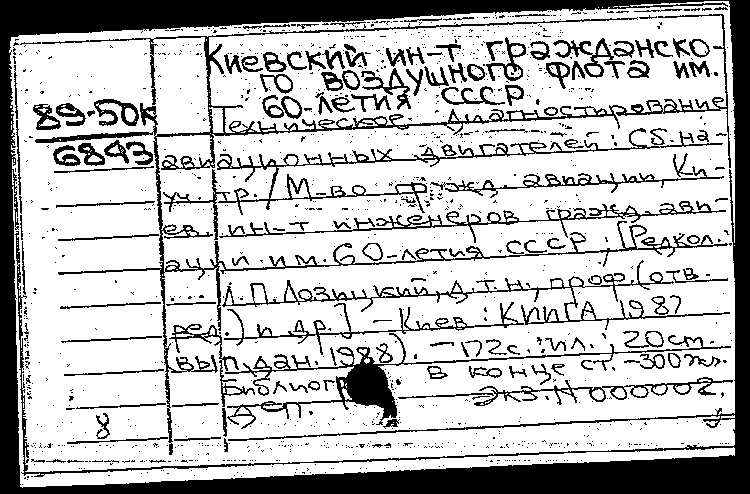 Киевский ин-т гражданско-
го воздушного флота им.
60-летия СССР.
89-50к
6843
Техническое диагностирование
авиационных двигателей: Сб. на-
уч. тр. / М-во гражд. авиации, Ки-
ев. ин-т инженеров гражд. ави-
ации им. 60-летия СССР; [Редкол.:
.... Л.П. Лозицкий, д.т.н., проф. (отв.
ред.) и др.] – Киев: КИИГА, 1987
(вып. дан. 1988). – 172 с.: ил.; 20 см.
Библиогр. в конце ст. – 300 экз.
Деп. Экз. N 000002.
8